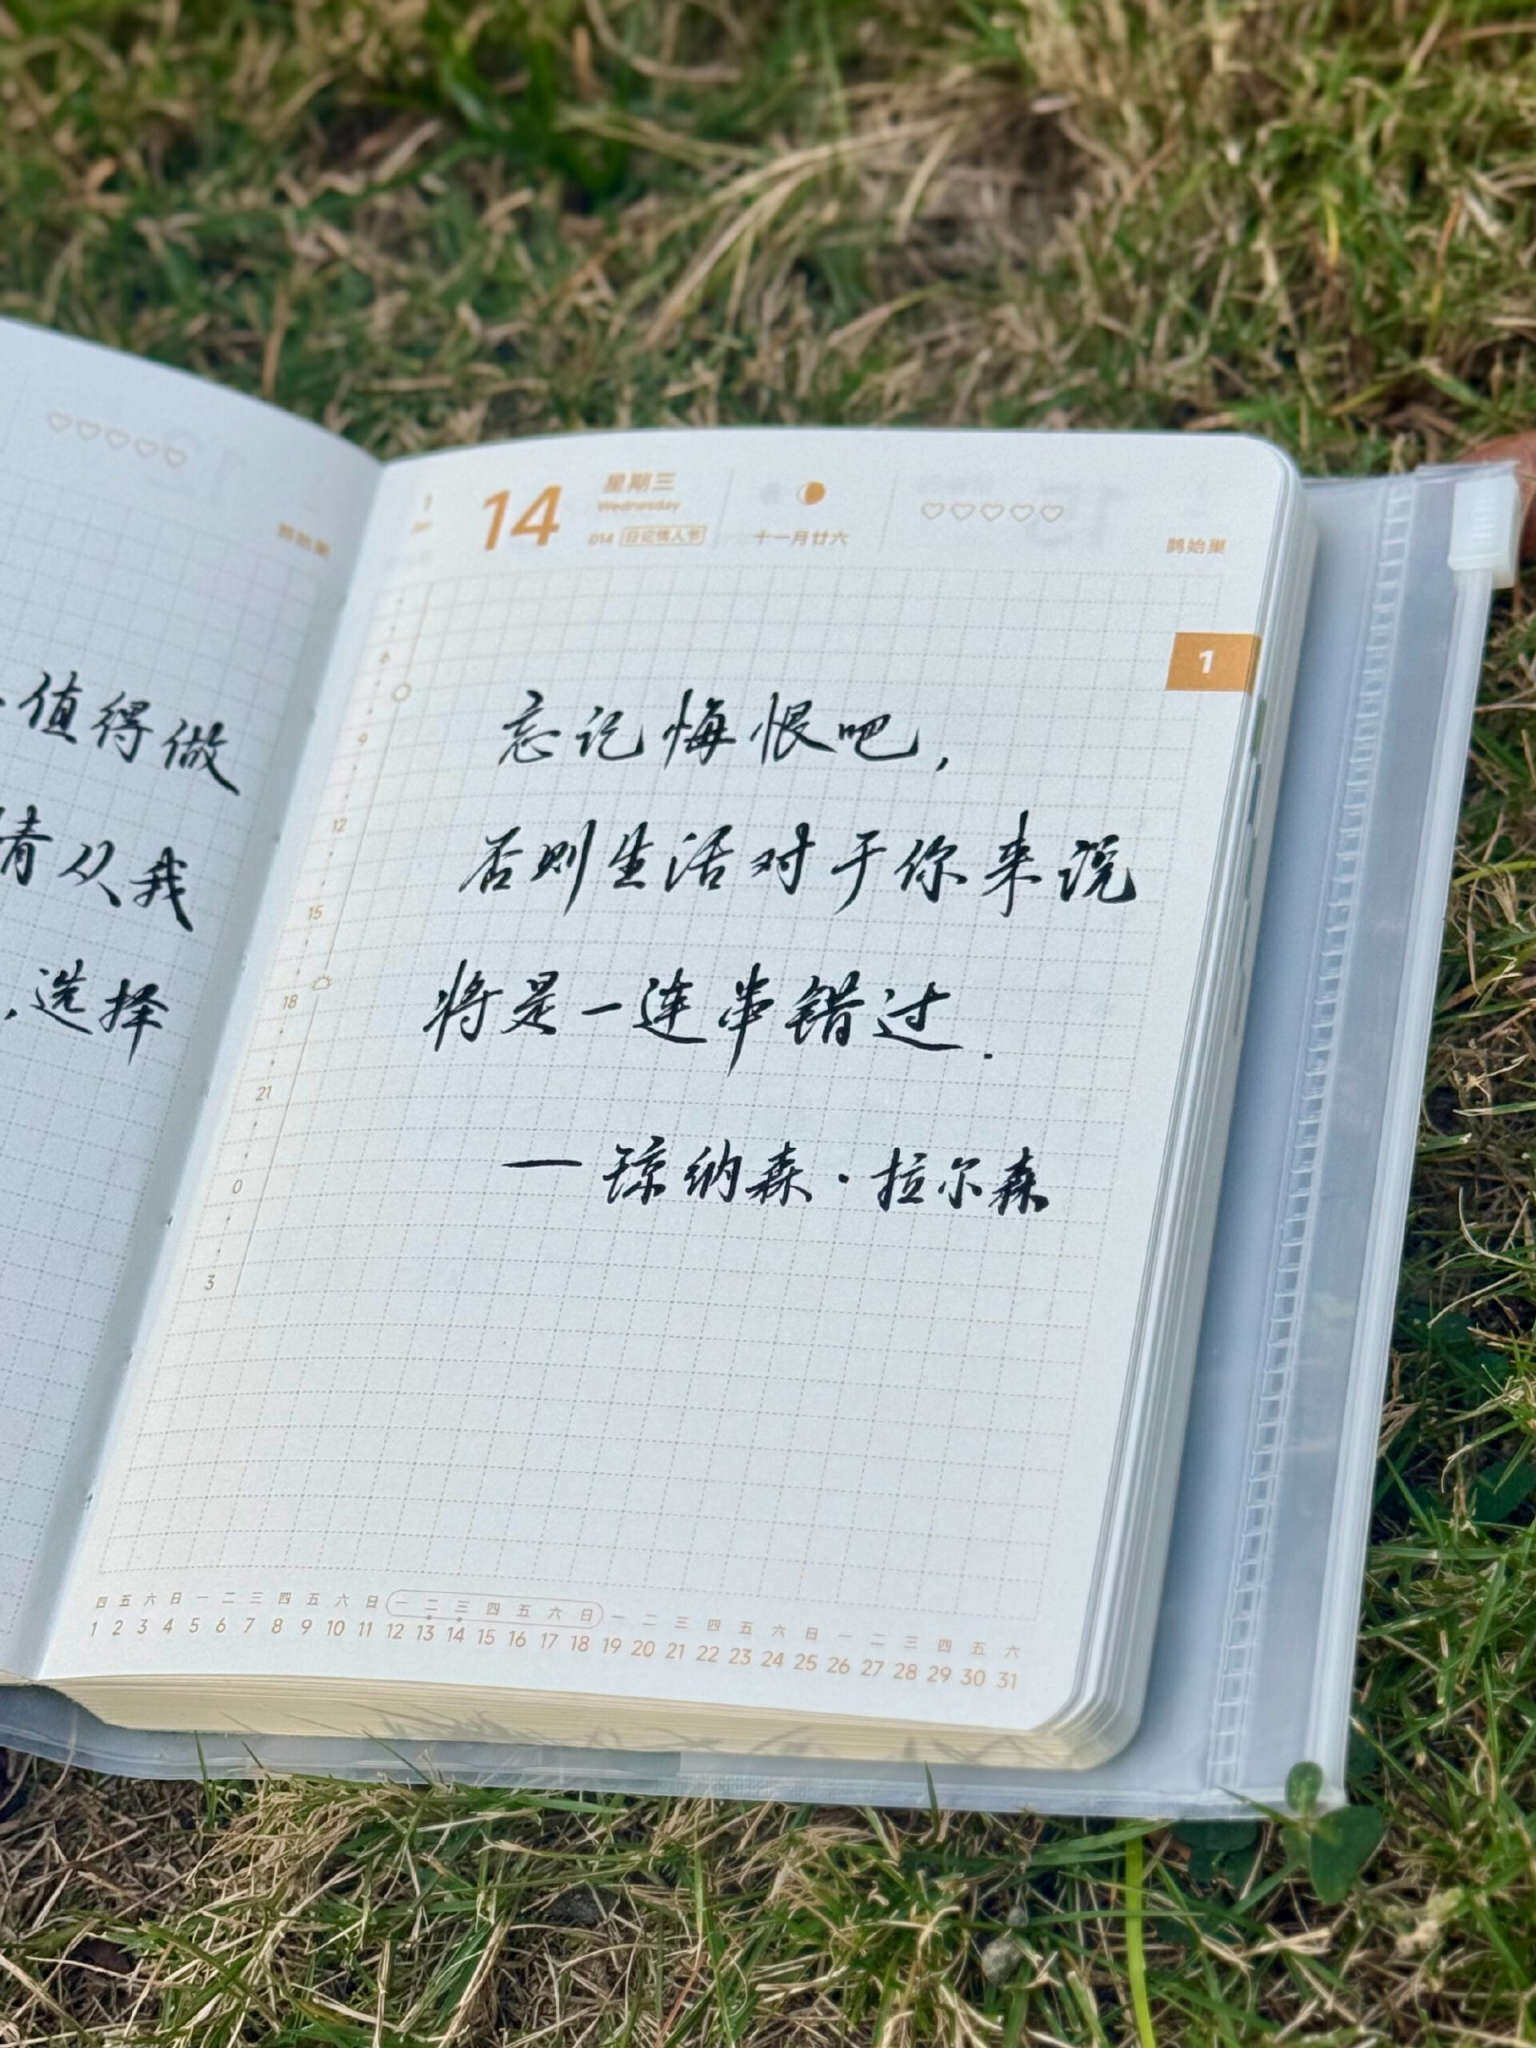 值得做
情从我
选择
鹊始巢
1
Jan
14
星期三
Wednesday
014 日记情人节
十一月廿六
鹊始巢
1
6
9
12
15
18
21
0
3
忘记悔恨吧，
否则生活对于你来说
将是一连串错过.
—琼纳森·拉尔森
四 五 六 日 一 二 三 四 五 六 日 一 二 三 四 五 六 日 一 二 三 四 五 六 日 一 二 三 四 五 六
1 2 3 4 5 6 7 8 9 10 11 12 13 14 15 16 17 18 19 20 21 22 23 24 25 26 27 28 29 30 31